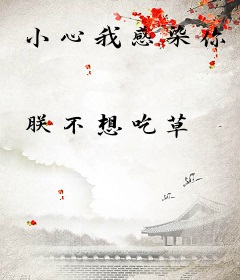 小心我感染你
朕不想吃草